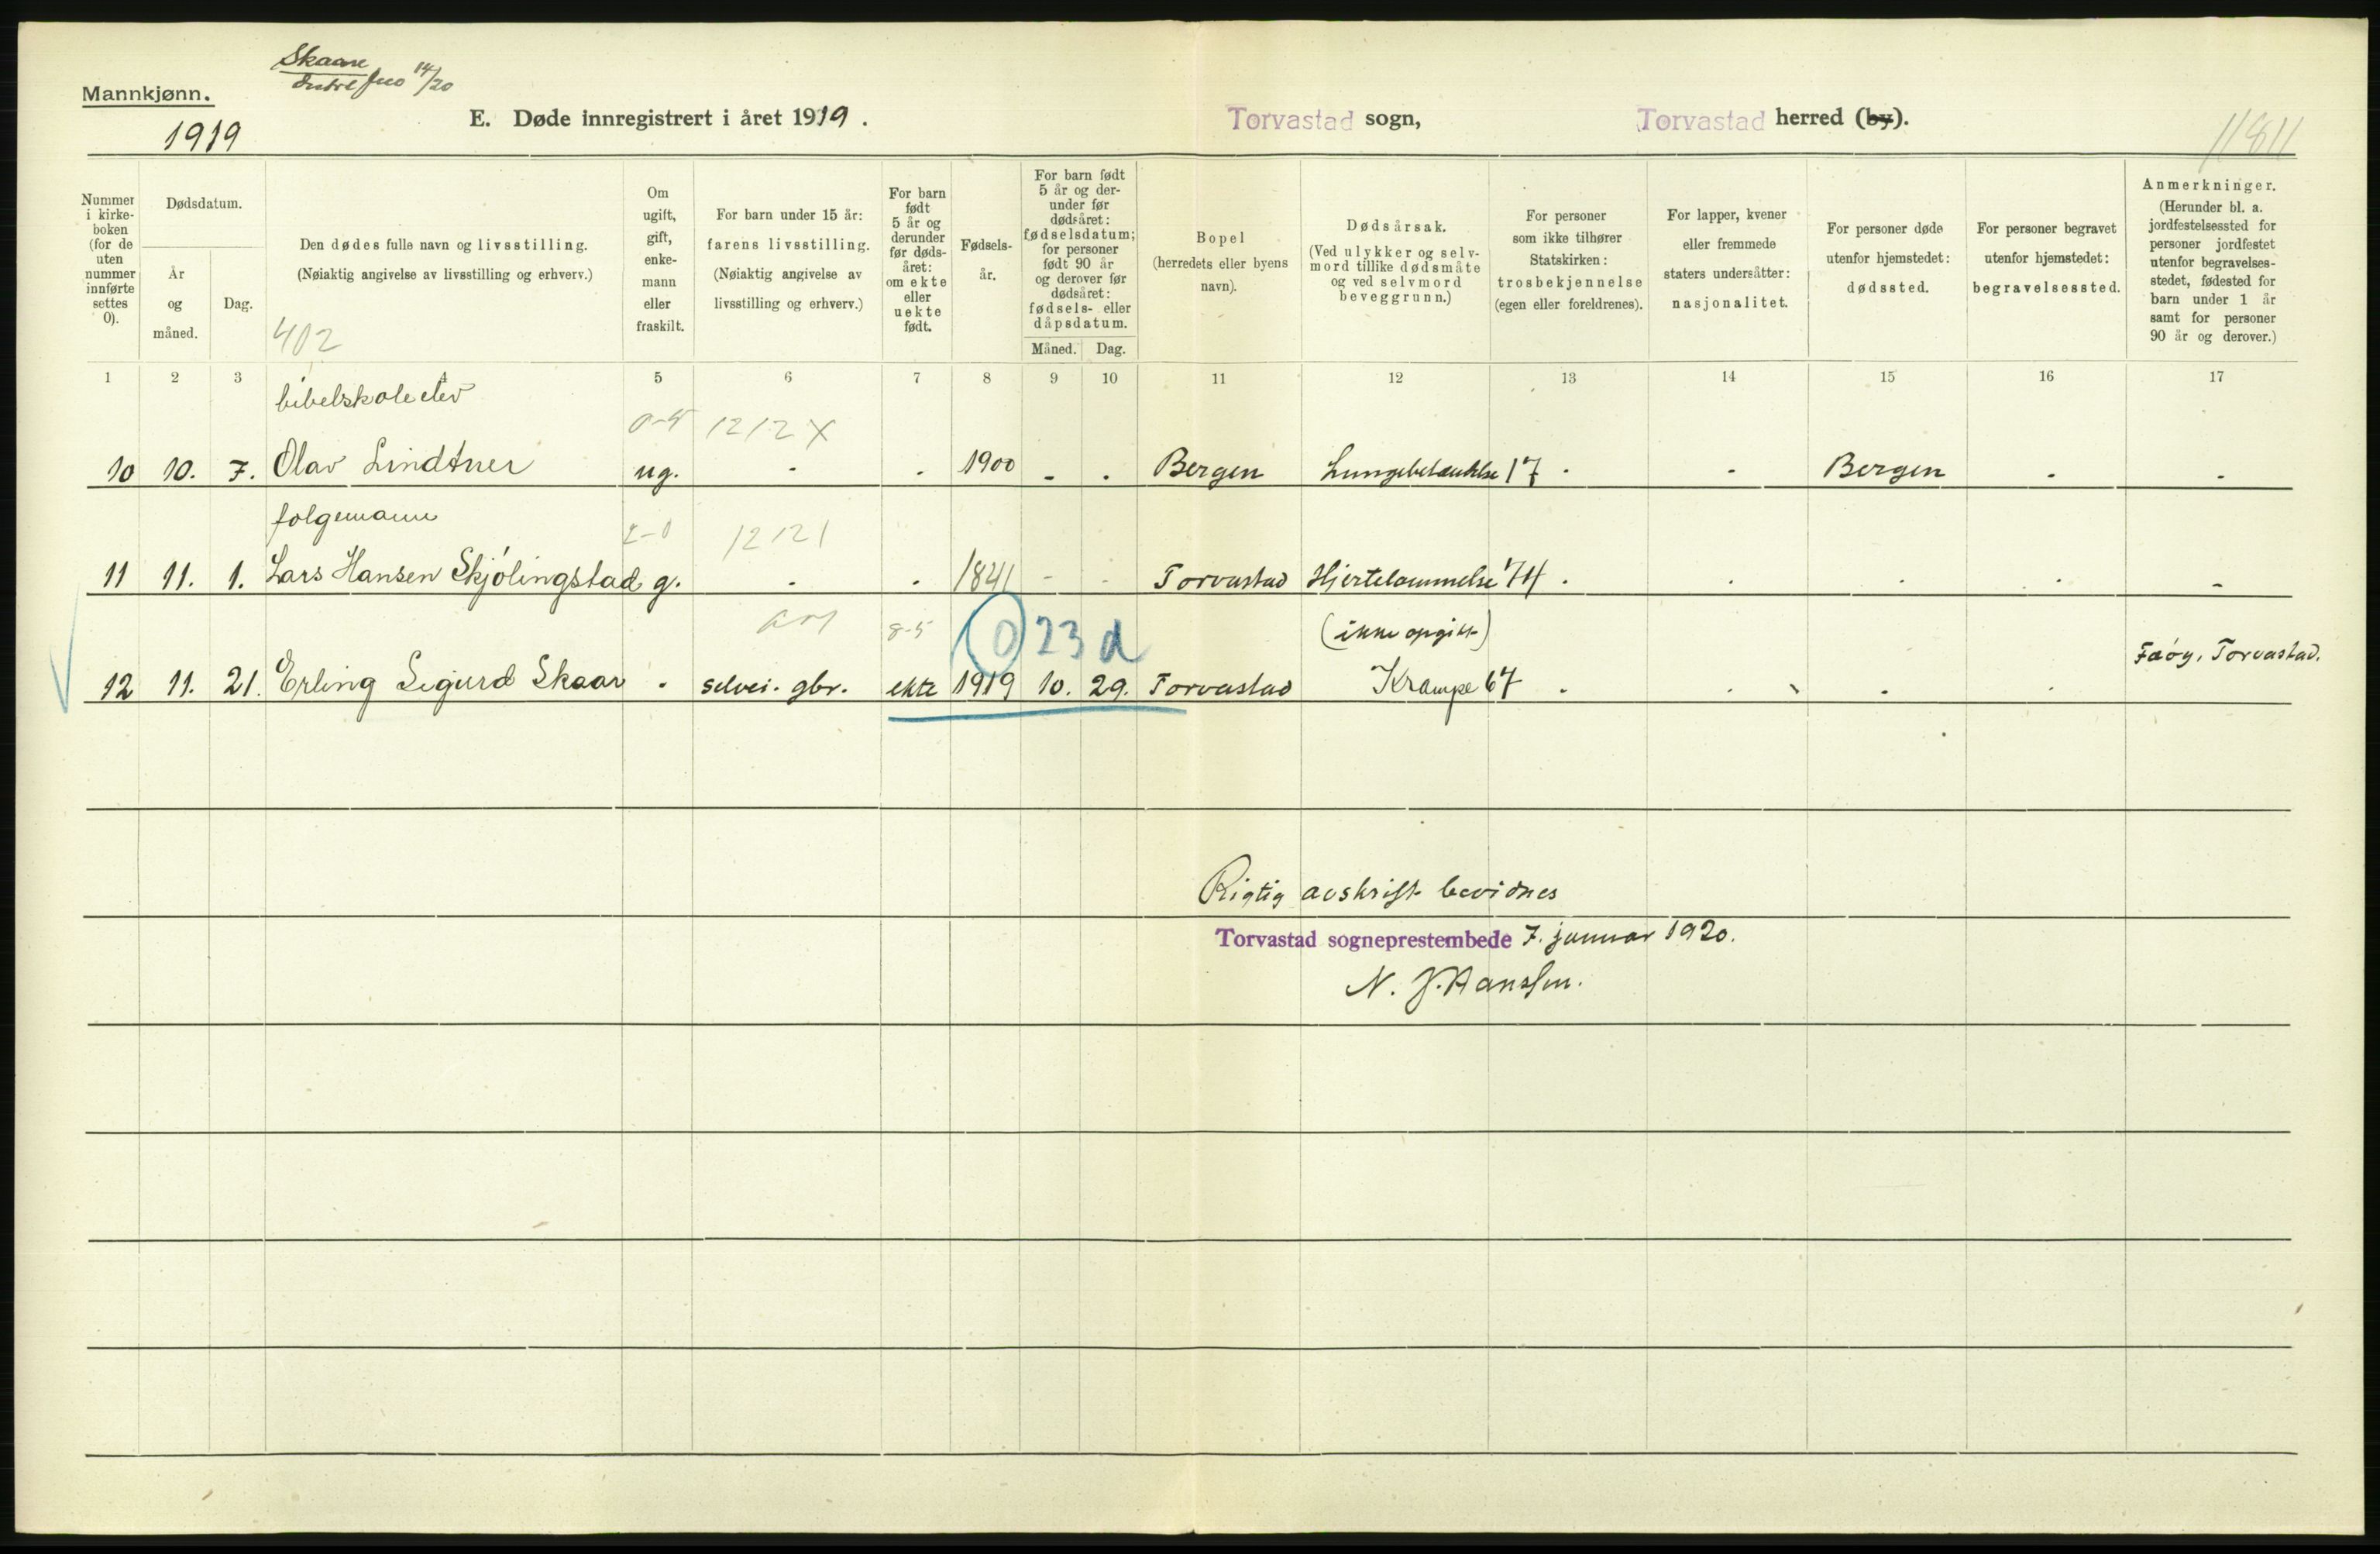 Skaare
14/20
Mannkjønn.
1919
E. Døde innregistrert i året 1919.
Torvastad sogn,
Torvastad herred (by).
11811
Nummer i kirkeboken (for de uten nummer innførte settes 0).
Dødsdatum.
År og måned.
Dag.
Den dødes fulle navn og livsstilling.
(Nøiaktig angivelse av livsstilling og erhverv.)
402
Om ugift, gift, enkemann eller fraskilt.
For barn under 15 år: farens livsstilling.
(Nøiaktig angivelse av livsstilling og erhverv.)
For barn født 5 år og derunder før dødsåret: om ekte eller uekte født.
Fødselsår.
For barn født 5 år og derunder før dødsåret: fødselsdatum; for personer født 90 år og derover før dødsåret: fødsels- eller dåpsdatum.
Måned.
Dag.
Bopel (herredets eller byens navn).
Dødsårsak.
(Ved ulykker og selvmord tillike dødsmåte og ved selvmord beveggrunn.)
For personer som ikke tilhører Statskirken: trosbekjennelse (egen eller foreldrenes).
For lapper, kvener eller fremmede staters undersåtter: nasjonalitet.
For personer døde utenfor hjemstedet: dødssted.
For personer begravet utenfor hjemstedet: begravelsessted.
Anmerkninger.
(Herunder bl. a. jordfestelsessted for personer jordfestet utenfor begravelsesstedet, fødested for barn under 1 år samt for personer 90 år og derover.)
1 2 3 4 5 6 7 8 9 10 11 12 13 14 15 16 17
bibelskoleelev
0-5 1212 X
10 10. 7. Olav Lindtner ug. - . 1900 - . Bergen Lungebetændelse 17 . - Bergen . -
følgemann
1121
11 11. 1. Lars Hansen Skjølingstad g. . . 1841 - - Torvastad Hjertelammelse 74 . . . . -
8-5 0 23 d (ikke opgitt)
12 11. 21. Erling Sigurd Skaar . selvei. gbr. ekte 1919 10. 29. Torvastad Krampe 67 . . . . Feøy, Torvastad.
Rigtig avskrift bevidnes
Torvastad sogneprestembede 7. januar 1920.
N. J. Hanssen.